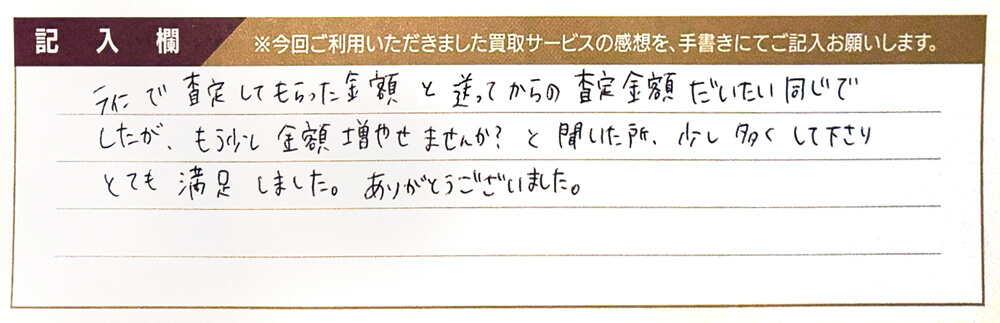 記入欄
※今回ご利用いただきました買取サービスの感想を、手書きにてご記入お願いします。
ラインで査定してもらった金額と送ってからの査定金額だいたい同じで
したが、もう少し金額増やせませんか?と聞いた所、少し多くして下さり
とても満足しました。ありがとうございました。